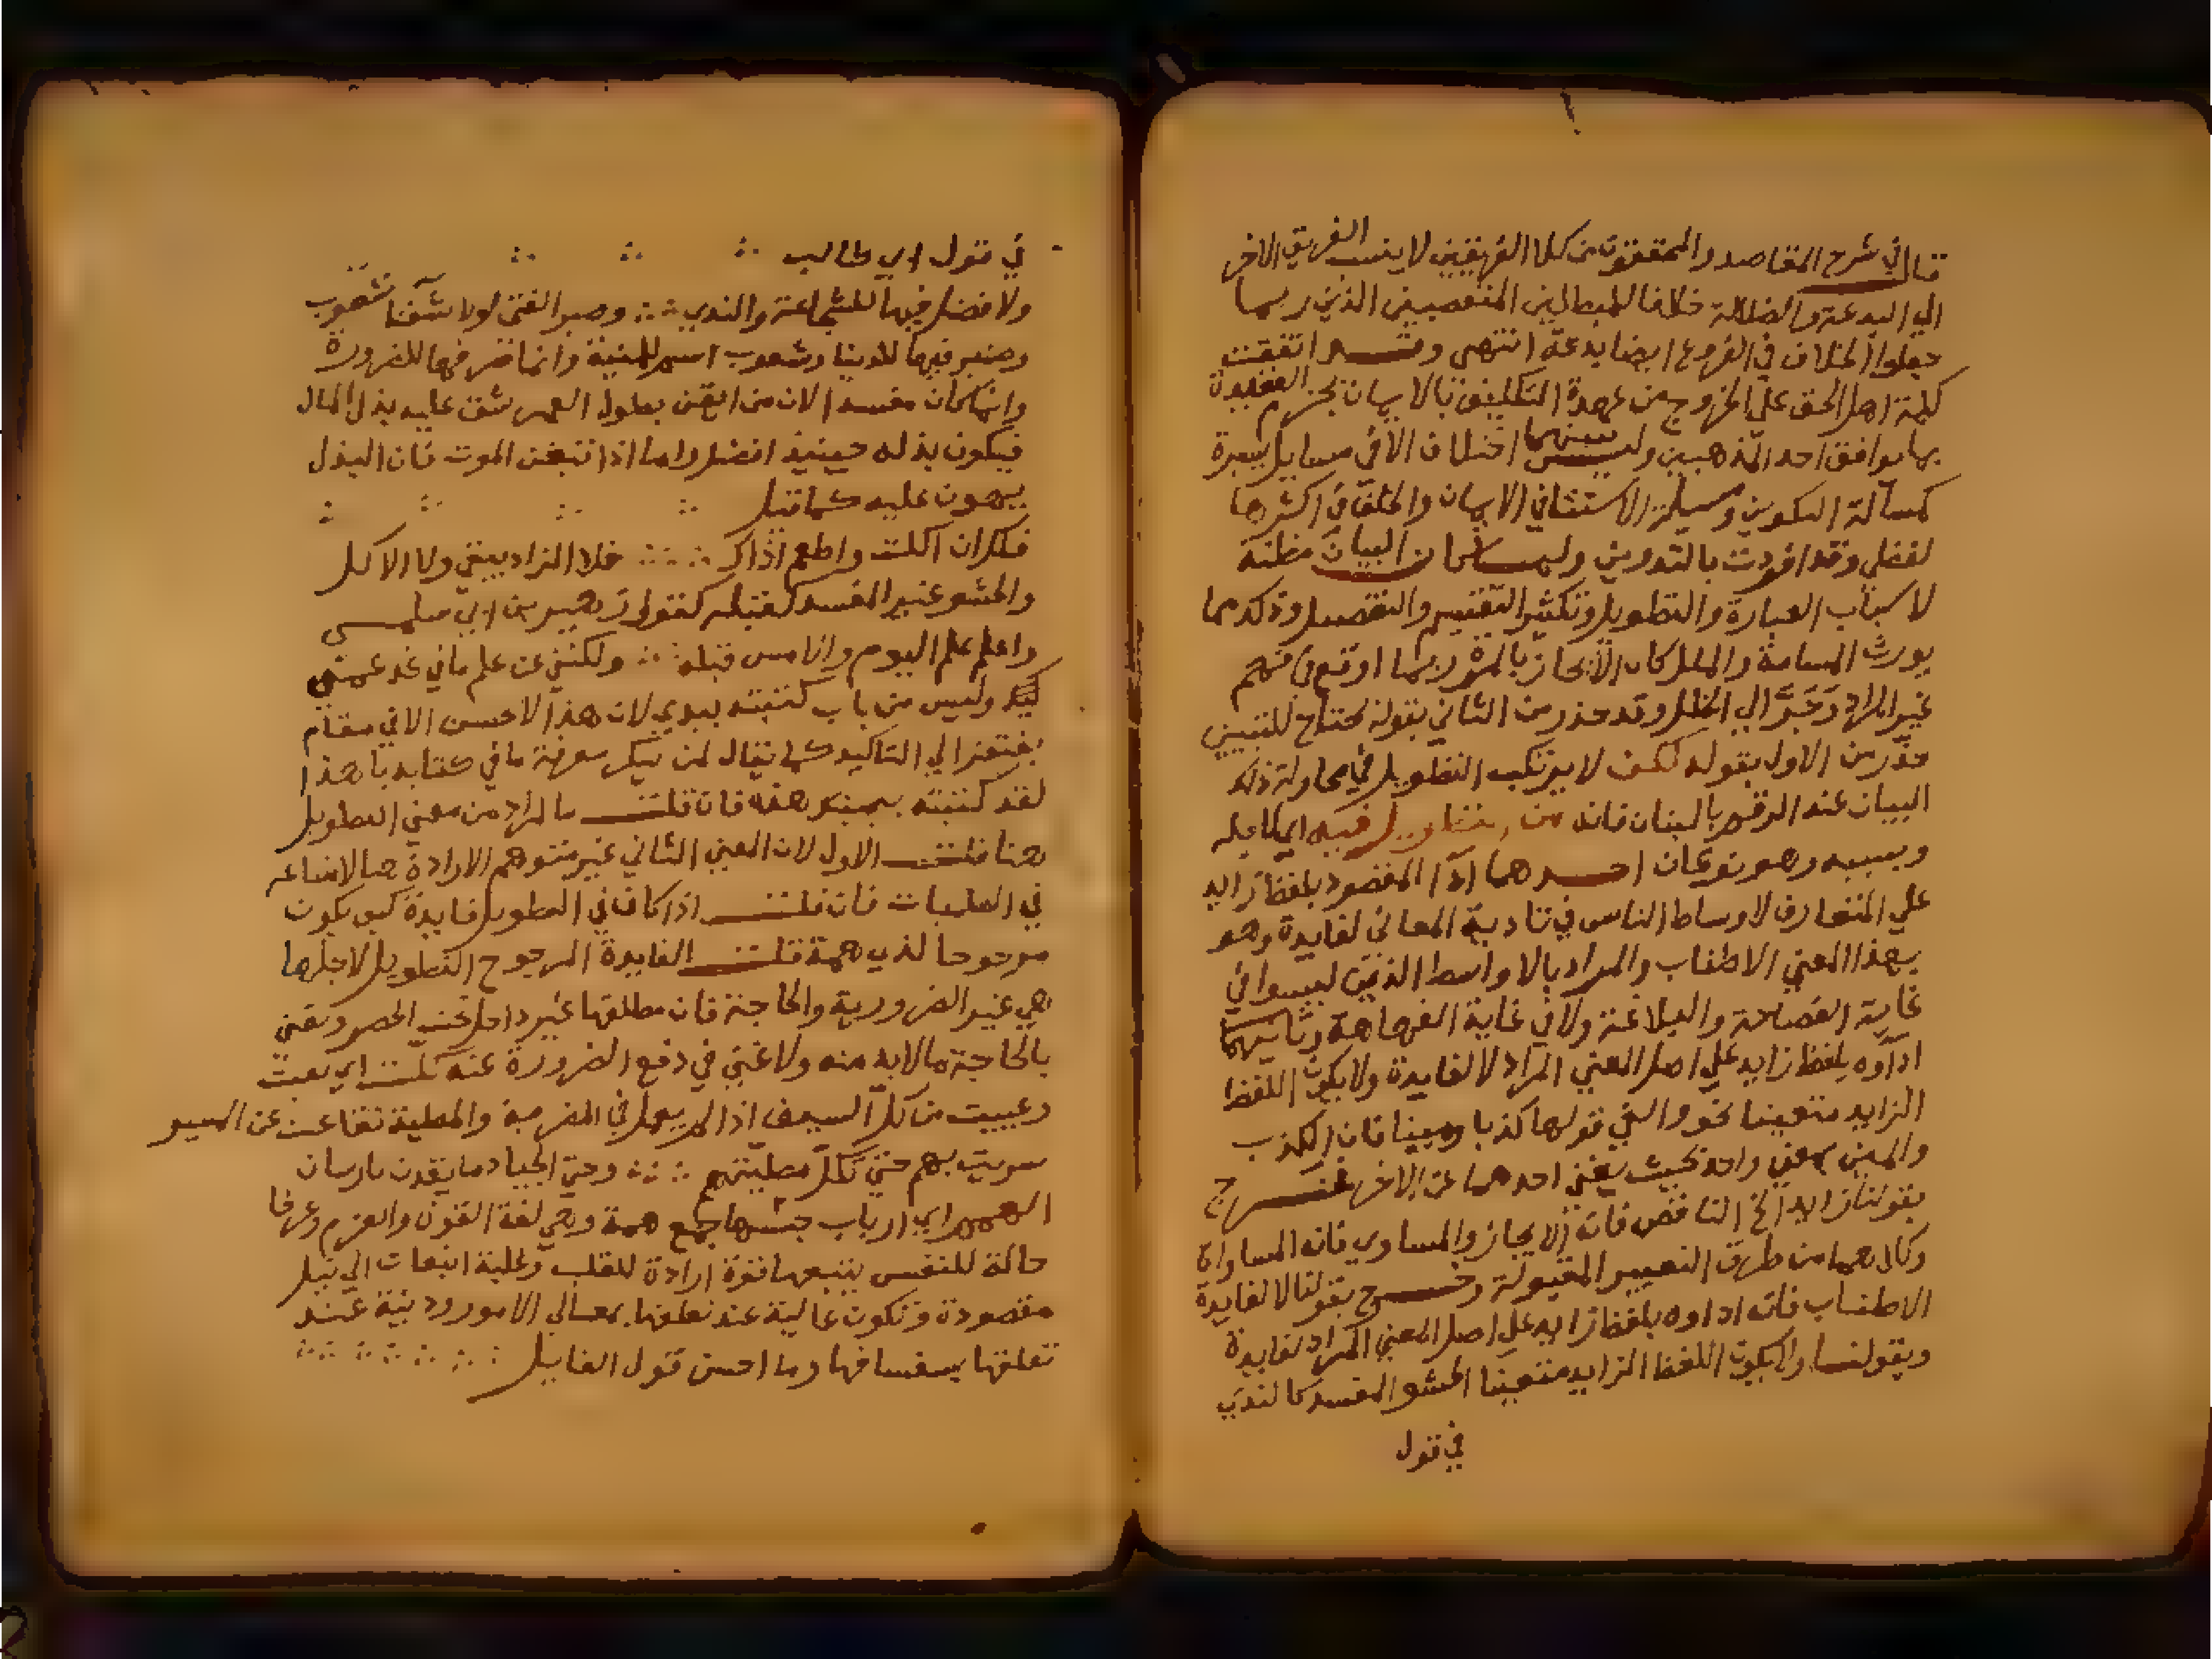 قال في شرح المقاصد والمحققون من كلا الفريقين لا ينسب الفريق الاخر
الي البدعة والضلالة خلافا للمبطلين المتعصبين الذين ربما
جعلوا الخلاف في الفروع ايضا بدعة انتهى وقد اتفقت
كلمة اهل الحق علي الخروج من عهدة التكليف بالايمان بجزم العقيدة
بما يوافق احد المذهبين وليس بينهما اختلاف الا في مسايل يسيرة
كمسألة التكوين ومسيلة الاستثنا في الايمان والخلف في اكثرها
لفظي وقد افردت بالتدوين ولما كان البيان مظنة
لاسباب العبارة والتطويل وتكثير التقسيم والتفصيل وذلك مما
يورث السامة والملل كان الايجاز بالمرة ربما اوقع في فهم
غير المراد وجر الي الخلل وقد حذر من الثاني بقوله محتاج للتبيين
حذر من الاول بقوله لكن لا يرتكب التطويل في محاولة ذلك
البيان عند الرقم بالبنان فانه من التطويل فيه اي لاجله
وبسببه وهو نوعان احدهما اداّ المقصود بلفظ زايد
علي المتعارف لاوساط الناس في تادية المعاني لفايدة وهو
بهذا المعني الاطناب والمراد بالاواسط الذين ليسوا في
غاية الفصاحة والبلاغة ولا في غاية الفهاهة وثانيهما
اداوه بلفظ زايد علي اصل المعني المراد لا لفايدة ولا يكون اللفظ
الزايد متعينا نحو والفي قولها كذبا ومينا فان الكذب
والمين بمعني واحد بحيث يغني احدهما عن الاخر فخرج
بقولنا زايد الخ الناقص فانه الايجاز والمساوي فانه المساواة
وكلاهما من طرق التعبير المقبولة وخرج بقولنا لا لفايدة
الاطناب فانه اداوه بلفظ زايد علي اصل المعني المراد لفايدة
وبقولنا ولا يكون اللفظ الزايد متعينا الحشو المفسد كالندي
في قول
في قول ابي طالب
ولا فضل فيها للشجاعة والندي وصبر الفتي لولا شَعُوب
وضمير فيها للدنيا وشعوب اسم للمنية وانما صرفها للضرورة
وانما كان مفسدا لان من ايقن بطول العمر شق عليه بذل المال
فيكون بذله حينيذ افضل واما اذا تيقن الموت فان البذل
يهون عليه كما قيل
فكل ان اكلت واطعم اخاك فلا الزاد يبقي ولا الاكل
والحشو غير المفسد كقبله كقول زهير بن ابي سلمى
واعلم علم اليوم والامس قبله ولكنني عن علم ما في غد عمي
وليس من باب كتبته بيدي لان هذا لا حسن الا في مقام
يفتقر الي التاكيد كما يقال لمن ينكر معرفة ما في كتابه يا هذا
لقد كتبته بيمينك هذه فان قلت ما المراد من معني التطويل
هنا قلت الاول لان المعني الثاني غير متوهم الارادة
في العلميات فان قلت اذا كان في التطويل فايدة كيف يكون
مرجوحا لذي همة قلت الفايدة المرجوح التطويل لاجلها
هي غير الضرورية والحاجة فان مطلقها غير داخل تحت الحصر ونعني
بالحاجة ما لابد منه ولا غني في دفع الضرورة عنه كلت اي تعبت
وعييت من كل السيف اذا لم يعمل في الضريبة والمطية تقاعست عن السير
سريت بهم حتي تكل مطيتهم وحتي الجياد ما يقدن بارسان
الهمم اي ارباب جنسها جمع همة وهي لغة القوة والعزم وعرفا
حالة للنفس يتبعها قوة ارادة للقلب وغلبة انبعاث الي نيل
مقصودة وتكون عالية عند تعلقها بمعالي الامور ودنية عند
تعلقها بسفسافها وما احسن قول القايل